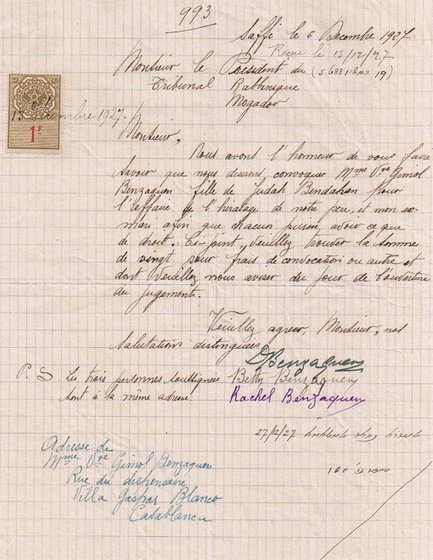 993
Saffi le 6 Decembre 1927
Reçue le 13/12/27
Monsieur le Président du
Tribunal Rabbinique
Mogador
13 décembre 1927.
1F
Monsieur,
Nous avons l'honneur de vous faire
savoir que nous desirons convoquer Mme Vve Gimol
Benzaquen fille de Judah Bendahan pour
l'affaire de l'hiratage de notre père, et mon
mari afin que chacun puisse avoir ce que
de droit. Ci-joint, Veuillez trouver la somme
de vingt pour frais de convocation ou autre et
dont Veuillez nous aviser du jour de l'ouverture
du jugement.
Veuillez agreer, Monsieur, nos
salutations distinguées
Benzaquen
P. S. Les trois personnes soussignées Betty Benzaquen
sont à la même adresse Rachel Benzaquen
27/12/27
160
Adresse de
Mme Vve Gimol Benzaquen
Rue du dispensaire
Villa Gaspar Blanco
Casablanca